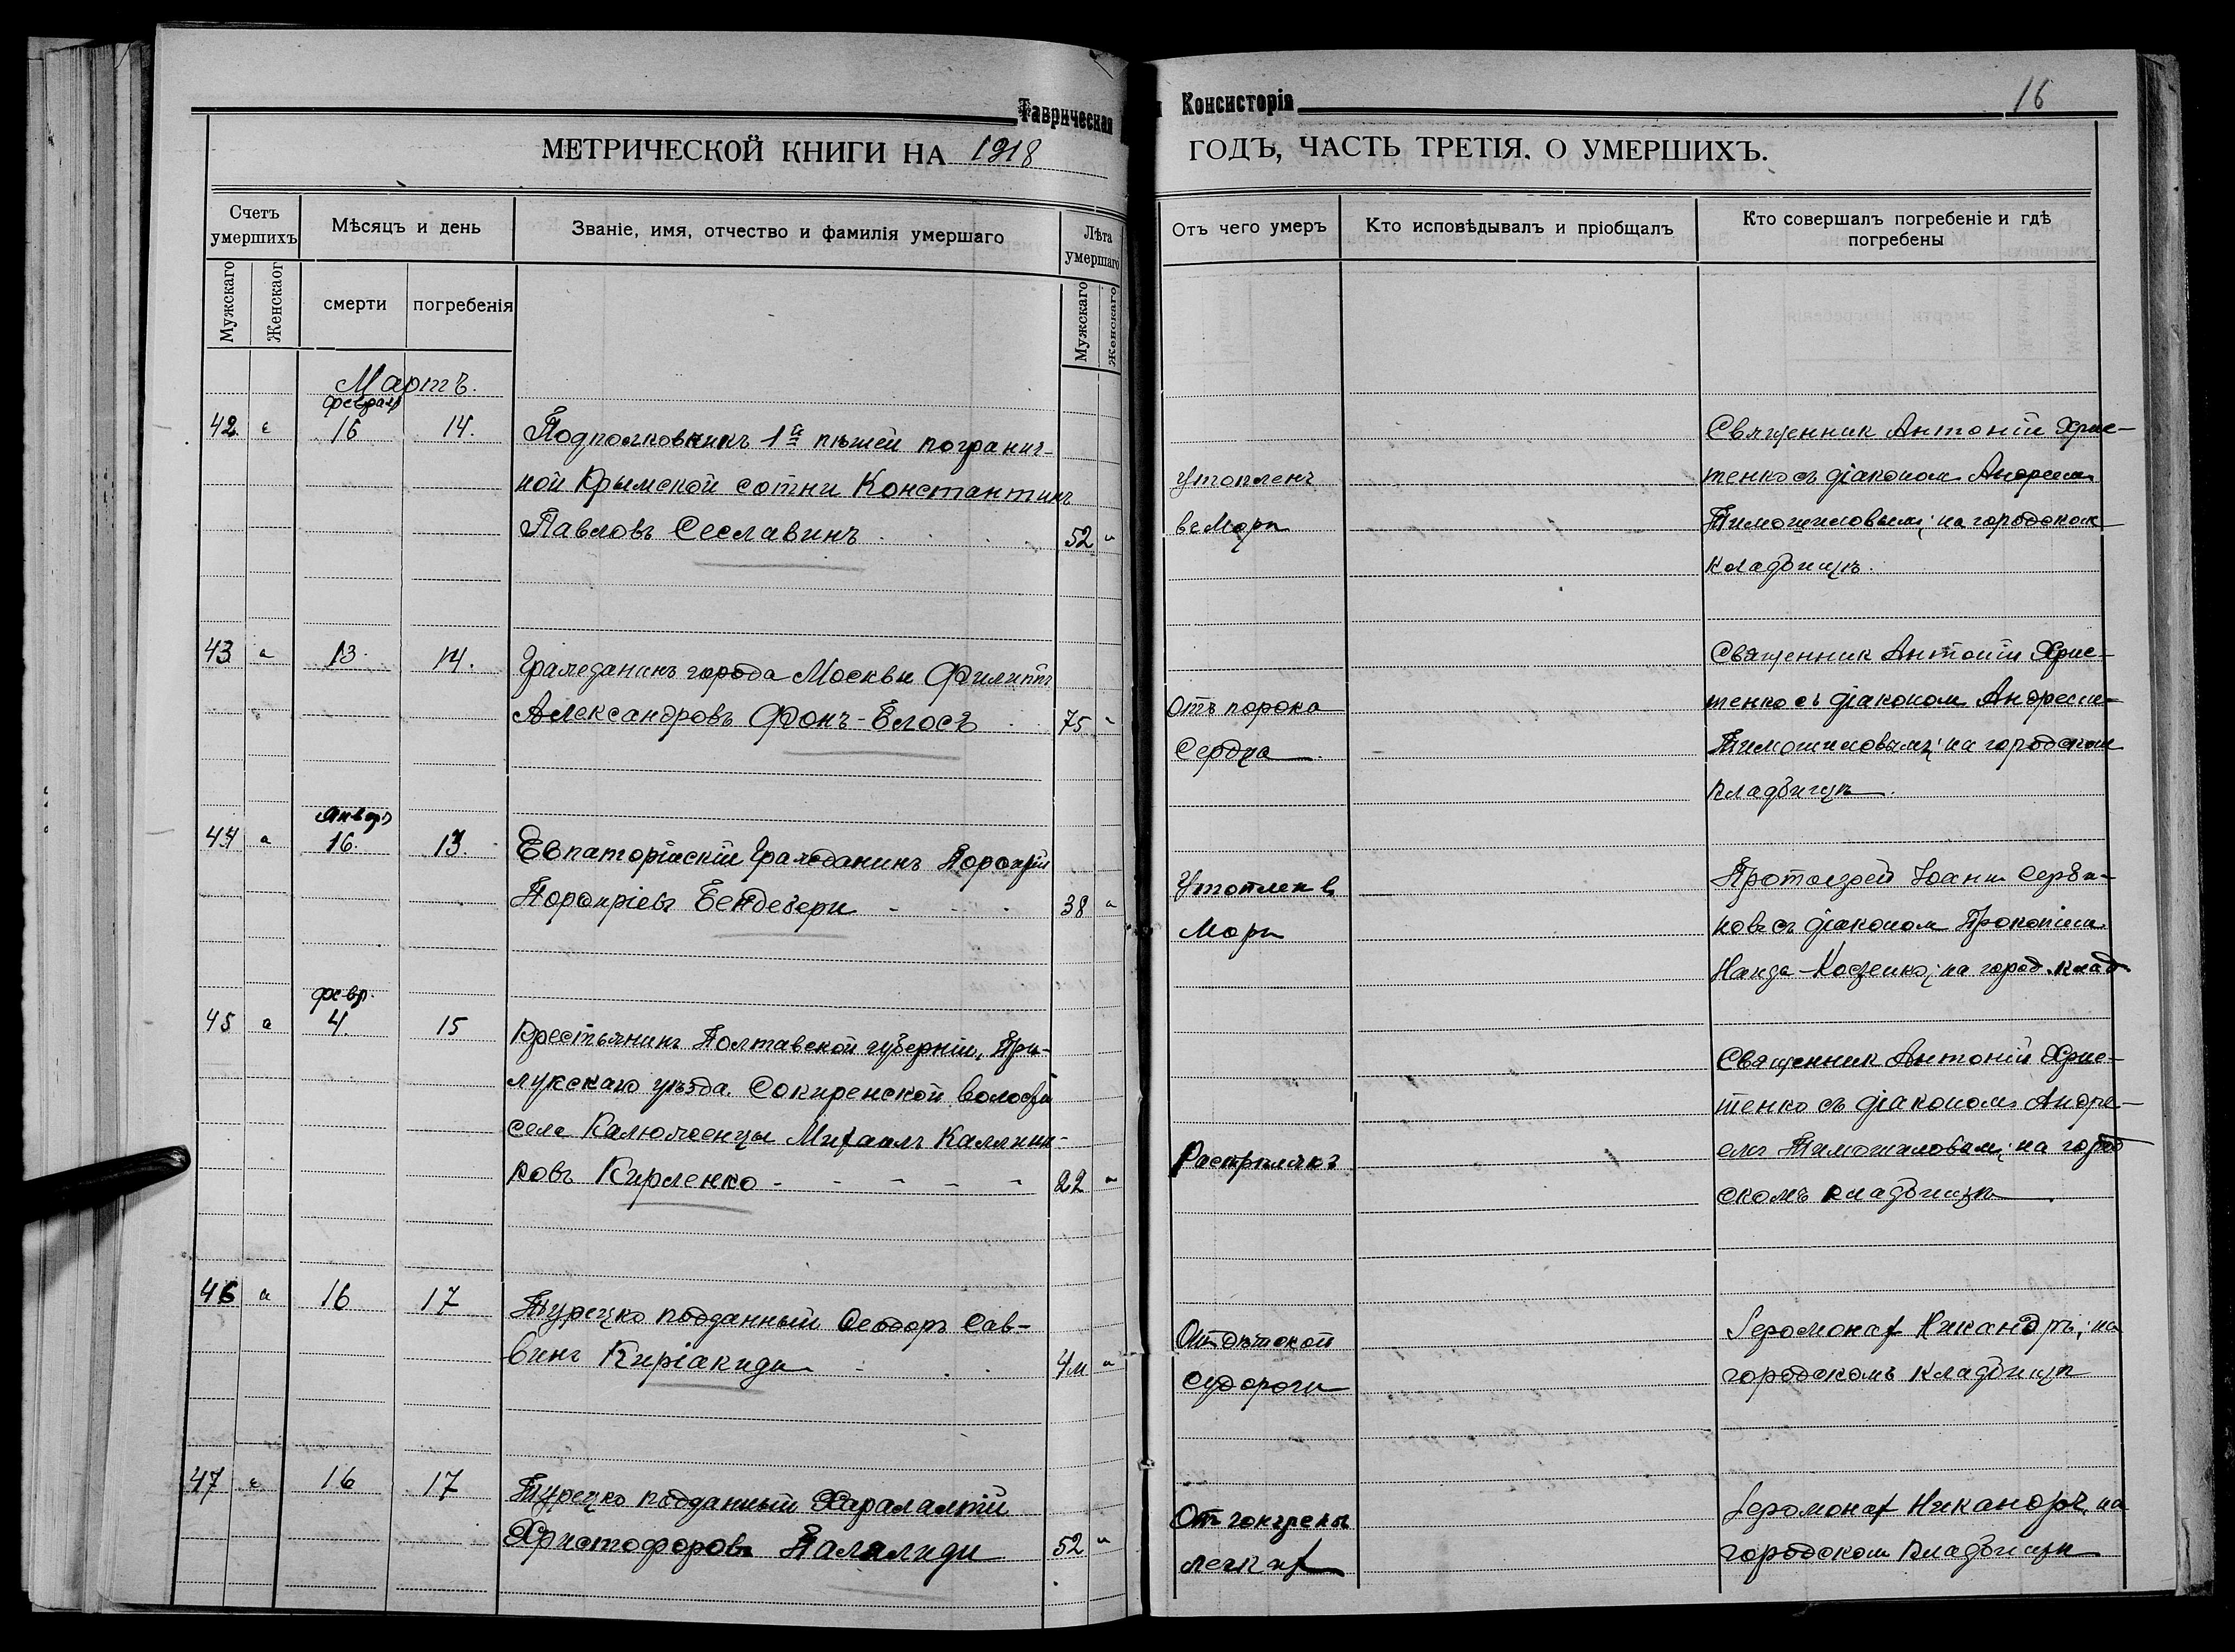 Таврическая
Консисторія
16
МЕТРИЧЕСКОЙ КНИГИ НА 1918
ГОДЪ, ЧАСТЬ ТРЕТІЯ. О УМЕРШИХЪ.
Счетъ умершихъ
Мѣсяцъ и день
Званіе, имя, отчество и фамилія умершаго
Лѣта умершаго
Отъ чего умеръ
Кто исповѣдывалъ и пріобщалъ
Кто совершалъ погребеніе и гдѣ погребены
Мужскаго
Женскаог
смерти
погребенія
Мужскаго
Женскаго
Мартъ.
42 16 14. Подполковникъ 1ª пѣшей погранич-
ной Крымской сотни Константинъ
Павловъ Сеславинъ 52
Утопленъ
въ Морѣ
Священник Антоній Хрис-
тенко съ діаконом Андреем
Тимошиловым; на городском
кладбищѣ.
43 13 14. Гражданинъ города Москвы Филиппъ
Александровъ Фонъ-Блосъ 75
Отъ порока
Сердца
Священник Антоній Хрис-
тенко съ діаконом Андреем
Тимошиловым; на городском
кладбищѣ.
Январ
44 16. 13. Евпаторійскій Гражданинъ Порфирій
Порфиріевъ Бендебери 38
Утоплен в
Морѣ
Протоіерей Іоанн Серби-
новъ съ діаконом Прокопіем
на город. клад.
февр.
45 4. 15 Крестьянинъ Полтавской губерніи, При-
лукскаго уѣзда. Сокиренской волости
села Калюженцы Михаилъ Каллини-
ковъ Кирленко 22
Разстрѣлянъ
Священник Антоній Хрис-
тенко съ діакономъ Андре-
ем Тимошиловым; на город
скомъ кладбищѣ
46 16 17 Турецко подданный Феодоръ Сав-
винъ Киріакиди 4м
От дѣтской
судороги
Іеромонах Никандръ; на
городскомъ кладбищѣ
47 16 17 Турецко подданный Харалампій
Христофоровъ Палалиди 52
От гонгрены
легких
Іеромонах Никандръ, на
городском кладбищѣ